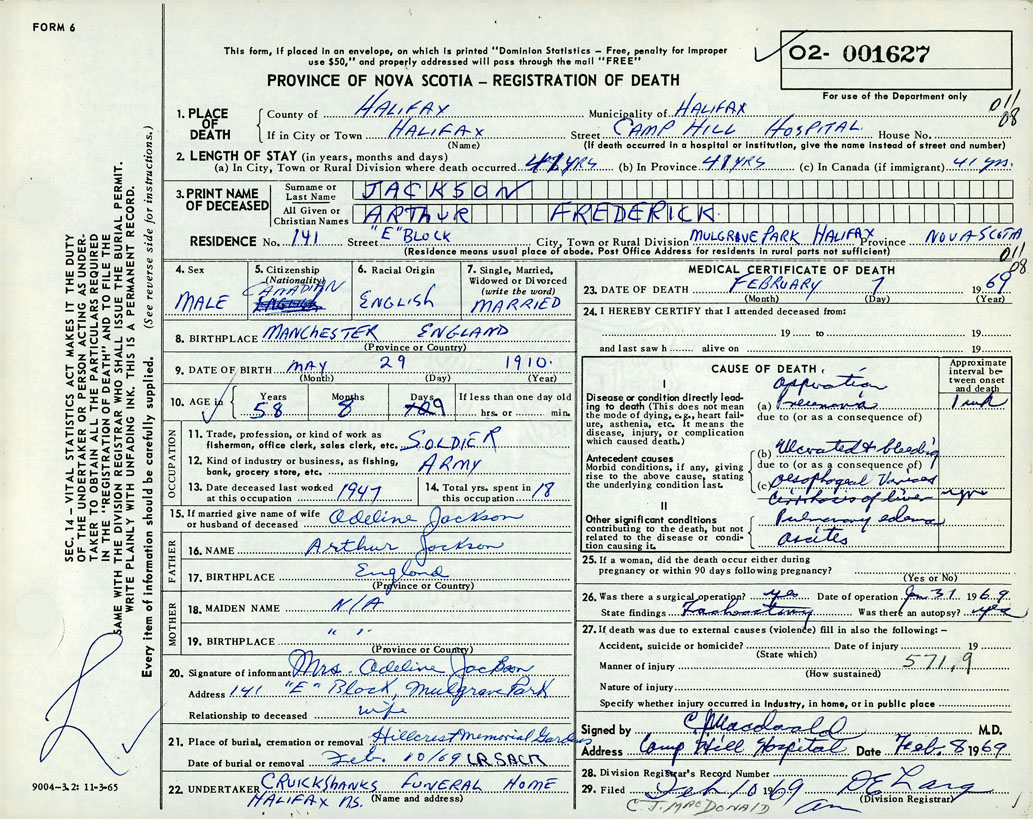 FORM 6
This form, if placed in an envelope, on which is printed "Dominion Statistics – Free, penalty for improper
use $50," and properly addressed will pass through the mail "FREE"
O2- 001627
For use of the Department only
PROVINCE OF NOVA SCOTIA – REGISTRATION OF DEATH
011
08
1. PLACE OF DEATH
County of HALIFAX Municipality of HALIFAX
If in City or Town HALIFAX Street CAMP HILL HOSPITAL House No.
(Name) (If death occurred in a hospital or institution, give the name instead of street and number)
2. LENGTH OF STAY (in years, months and days)
(a) In City, Town or Rural Division where death occurred 41 YRS (b) In Province 41 YRS (c) In Canada (if immigrant) 41 yrs.
3. PRINT NAME OF DECEASED
Surname or Last Name JACKSON
All Given or Christian Names ARTHUR FREDERICK
RESIDENCE No. 141 Street "E" BLOCK City, Town or Rural Division MULGRAVE PARK HALIFAX Province NOVA SCOTIA
(Residence means usual place of abode. Post Office Address for residents in rural parts not sufficient)
011
08
4. Sex MALE
5. Citizenship (Nationality) CANADIAN ENGLISH
6. Racial Origin ENGLISH
7. Single, Married, Widowed or Divorced (write the word) MARRIED
8. BIRTHPLACE MANCHESTER ENGLAND
(Province or Country)
9. DATE OF BIRTH MAY 29 1910.
(Month) (Day) (Year)
10. AGE in Years 58 Months 8 Days 9 If less than one day old
hrs. or min.
OCCUPATION
11. Trade, profession, or kind of work as fisherman, office clerk, sales clerk, etc. SOLDIER
12. Kind of industry or business, as fishing, bank, grocery store, etc. ARMY
13. Date deceased last worked at this occupation 1947
14. Total yrs. spent in this occupation 18
15. If married give name of wife or husband of deceased Adeline Jackson
FATHER
16. NAME Arthur Jackson
17. BIRTHPLACE England
(Province or Country)
MOTHER
18. MAIDEN NAME N/A
19. BIRTHPLACE " "
(Province or Country)
20. Signature of informant Mrs. Adeline Jackson
Address 141 "E" Block, Mulgrave Park
Relationship to deceased wife
21. Place of burial, cremation or removal Hillcrest Memorial Gardens
Date of burial or removal Feb. 10/69 LR. SACK
22. UNDERTAKER CRUICKSHANKS FUNERAL HOME
HALIFAX NS. (Name and address)
MEDICAL CERTIFICATE OF DEATH
23. DATE OF DEATH FEBRUARY 7 1969
(Month) (Day) (Year)
24. I HEREBY CERTIFY that I attended deceased from:
19 to 19
and last saw h alive on 19
CAUSE OF DEATH
Approximate interval between onset and death
I
Disease or condition directly leading to death (This does not mean the mode of dying, e.g., heart failure, asthenia, etc. It means the disease, injury, or complication which caused death.)
(a) pneumonia 1 wk
due to (or as a consequence of)
Antecedent causes
Morbid conditions, if any, giving rise to the above cause, stating the underlying condition last.
(b) Ulcerated & bleeding
due to (or as a consequence of)
(c) Oesophageal Varices
Cirrhosis of liver
II
Other significant conditions contributing to the death, but not related to the disease or condition causing it.
Pulmonary edema
Ascites
25. If a woman, did the death occur either during
pregnancy or within 90 days following pregnancy?
(Yes or No)
26. Was there a surgical operation? yes Date of operation Jan 31 1969.
State findings Was there an autopsy? yes
27. If death was due to external causes (violence) fill in also the following: –
Accident, suicide or homicide? Date of injury 19
(State which)
571.9
Manner of injury
(How sustained)
Nature of injury
Specify whether injury occurred in industry, in home, or in public place
Signed by C J Macdonald M.D.
Address Camp Hill Hospital Date Feb. 8 1969
28. Division Registrar's Record Number
29. Filed Feb 10 1969 D E Lang
(Division Registrar)
C. J. MACDONALD
SEC. 14 – VITAL STATISTICS ACT MAKES IT THE DUTY
OF THE UNDERTAKER OR PERSON ACTING AS UNDER-
TAKER TO OBTAIN ALL THE PARTICULARS REQUIRED
IN THE "REGISTRATION OF DEATH" AND TO FILE THE
SAME WITH THE DIVISION REGISTRAR WHO SHALL ISSUE THE BURIAL PERMIT.
WRITE PLAINLY WITH UNFADING INK. THIS IS A PERMANENT RECORD.
Every item of information should be carefully supplied. (See reverse side for instructions.)
9004-3.2: 11-3-65